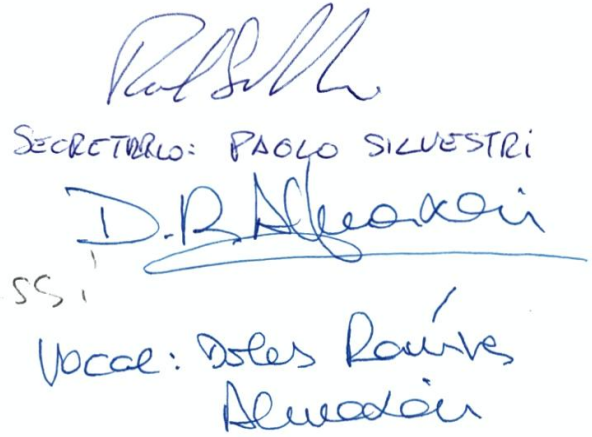 SECRETARIO: PAOLO SILVESTRI
D.R. Almazán
SS.
Vocal: Dolores Ramírez
Almazán